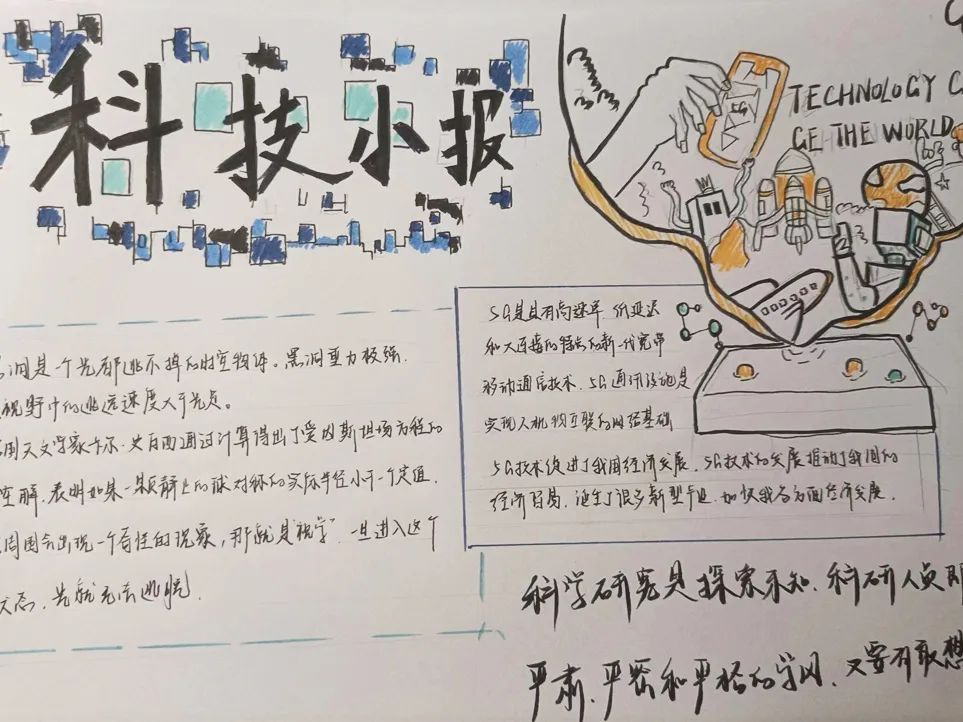 科技小报
TECHNOLOGY C
GE THE WORLD
5G
洞是一个光都逃不掉的时空物体。黑洞重力极强.
视界中的逃逸速度大于光点。
国天文学家卡尔·史自西通过计算得出了爱因斯坦场方程的
空解,表明如果一颗静止的球对称的实际半径小于一个定值,
周围会出现一个奇怪的现象,那就是"视宇" 一旦进入这个
光就无法逃脱.
5G是具有高速率、低延迟
和大连接的特点的新一代宽带
移动通信技术,5G通讯设施是
实现人机物互联的网络基础
5G技术促进了我国经济发展,5G技术的发展推动了我国的
经济 诞生了很多新型产业,加快我各方面经济发展.
科学研究是探索未知,科研人员
严肃、严密和严格的学风,又要有敢想